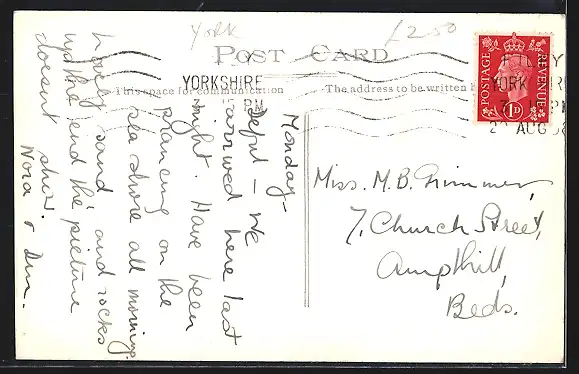 York
£2.50
POST CARD
YORKSHIRE
15 PM
This space for communication
The address to be written
POSTAGE
REVENUE
1D
FILEY
YORKSHIRE
AUG
Monday –
We
arrived here last
night. Have been
prancing on the
sea shore all morning
Lovely sand and rocks
up the end the picture
doesn't show.
Nora &
Miss. M. B. Trimmer,
7, Church Street,
Ampthill,
Beds.